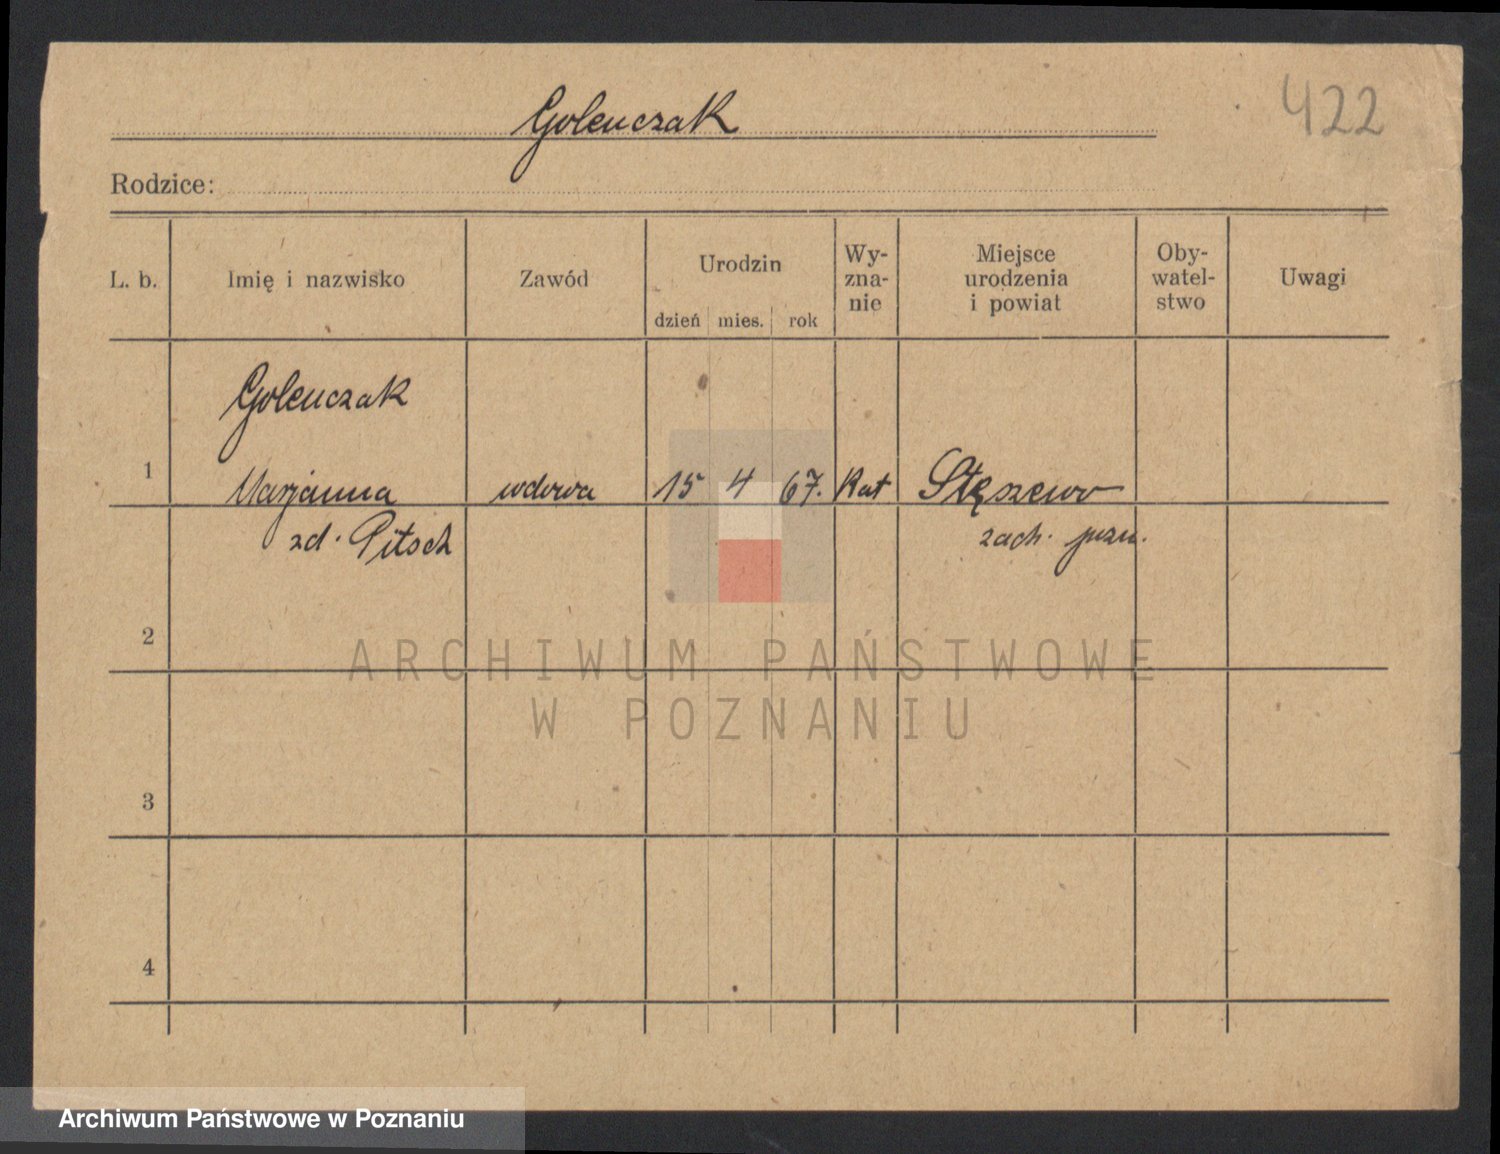 Golenczak
422
Rodzice:
L. b. Imię i nazwisko Zawód Urodzin dzień mies. rok Wy-zna-nie Miejsce urodzenia i powiat Oby-watel-stwo Uwagi
Golenczak
1 Marjanna wdowa 15 4 67. Kat Stęszewo
zd. Pitsch zach. pozn.
2
ARCHIWUM PAŃSTWOWE
W POZNANIU
3
4
Archiwum Państwowe w Poznaniu